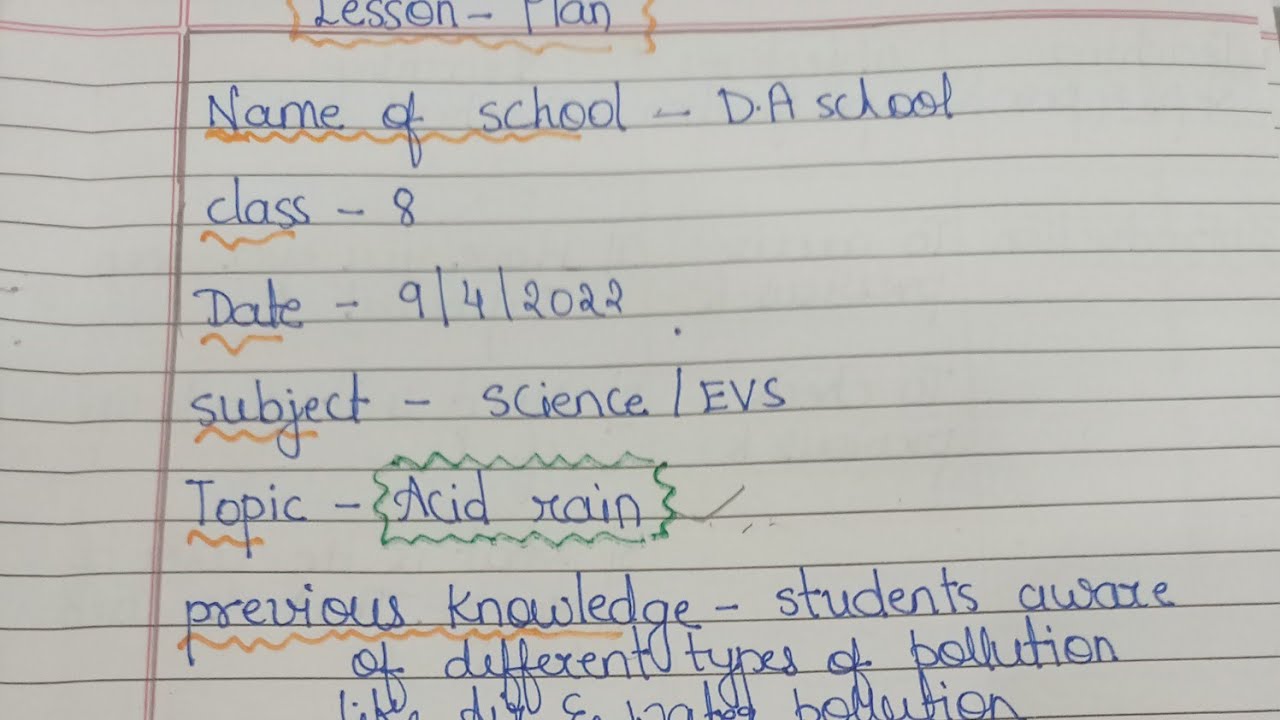 Lesson - Plan
Name of school - D.A school
class - 8
Date - 9/4/2022
subject - science / EVS
Topic - Acid rain
previous knowledge - students aware
of different types of pollution
pollution